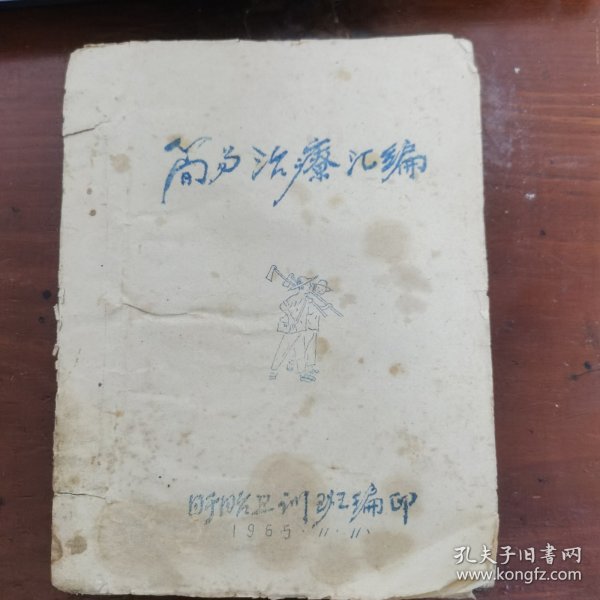 简易治療汇编
盱眙卫训班编印
1965.11.11.
孔夫子旧书网
www.kongfz.com